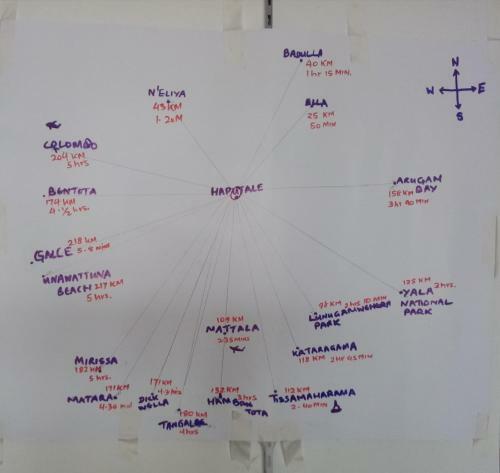 BADULLA
40 KM
1 hr 15 MIN.
N
W E
S
N'ELIYA
43 KM
1-20M
ELLA
25 KM
50 MIN
COLOMBO
204 KM
5 hrs
HAPUTALE
ARUGAM
BAY
158 KM
3 hr 40 MIN
BENTOTA
174 KM
4-½ hrs.
218 KM
GALLE 5-8 MINS
UNAWATTUNA
BEACH 217 KM
5 hrs.
125 KM
YALA 3 hrs.
NATIONAL
PARK
98 KM 2 hrs 10 MIN
LUNUGAMWEHERA
PARK
109 KM
MATTALA
2-35 MINS
KATARAGAMA
118 KM 2 hr 45 MIN
MIRISSA
182 KM
5 hrs.
171 KM
MATARA
4-30 MIN
171 KM
4-2 hrs
DICK
WELLA
180 KM
TANGALLE
4 hrs
132 KM
3 hrs
HAMBAN
TOTA
112 KM
TISSAMAHARAMA
2-40 MIN